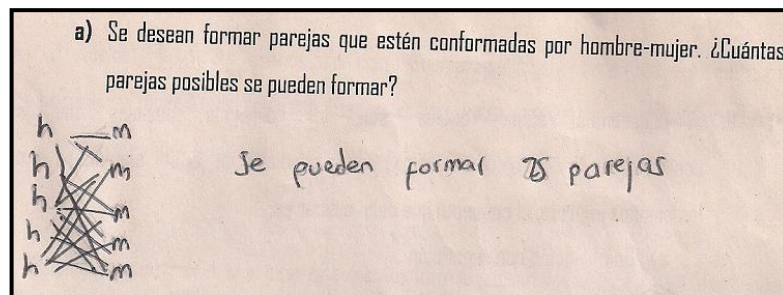 a) Se desean formar parejas que estén conformadas por hombre-mujer. ¿Cuántas
parejas posibles se pueden formar?
h m
h m
h m
h m
h m
Se pueden formar 25 parejas